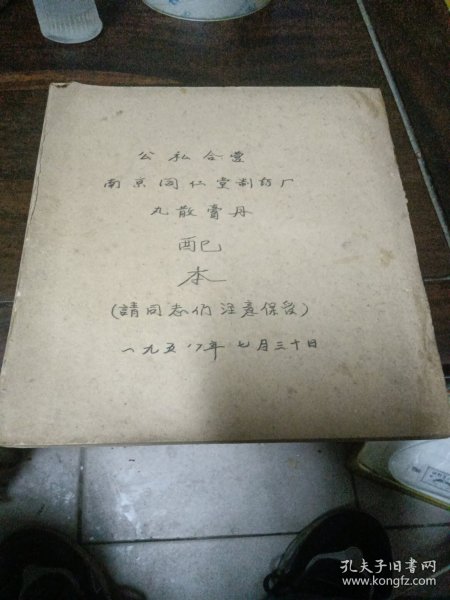 公私合营
南京同仁堂制药厂
丸散膏丹
配
本
(請同志们注意保管)
一九五八年七月三十日
孔夫子旧书网
www.kongfz.com